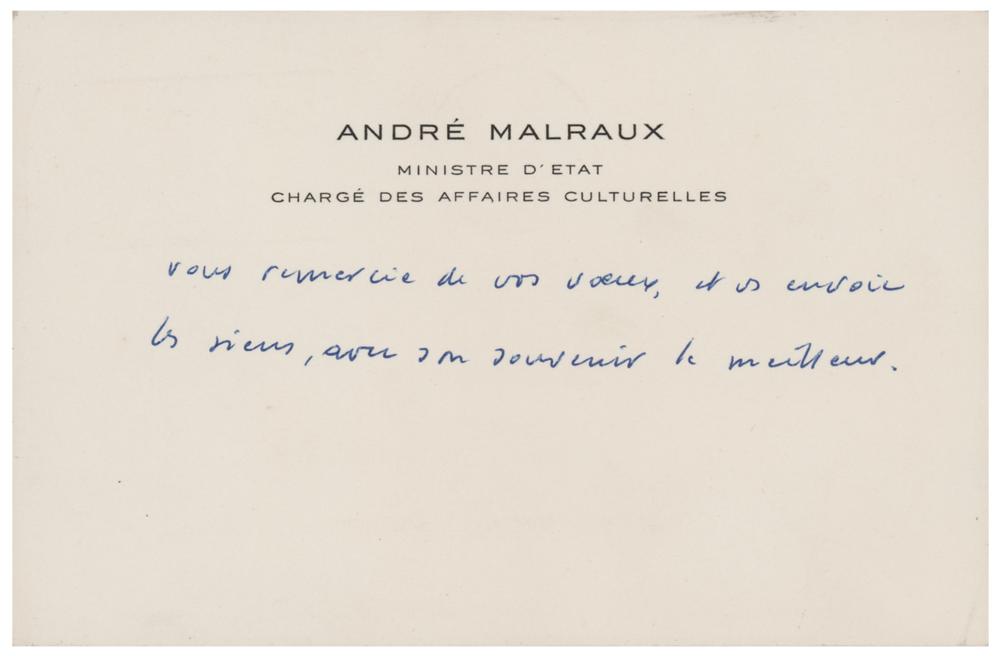 ANDRÉ MALRAUX
MINISTRE D'ETAT
CHARGÉ DES AFFAIRES CULTURELLES
vous remercie de vos vœux, et vs envoie
les siens, avec son souvenir le meilleur.